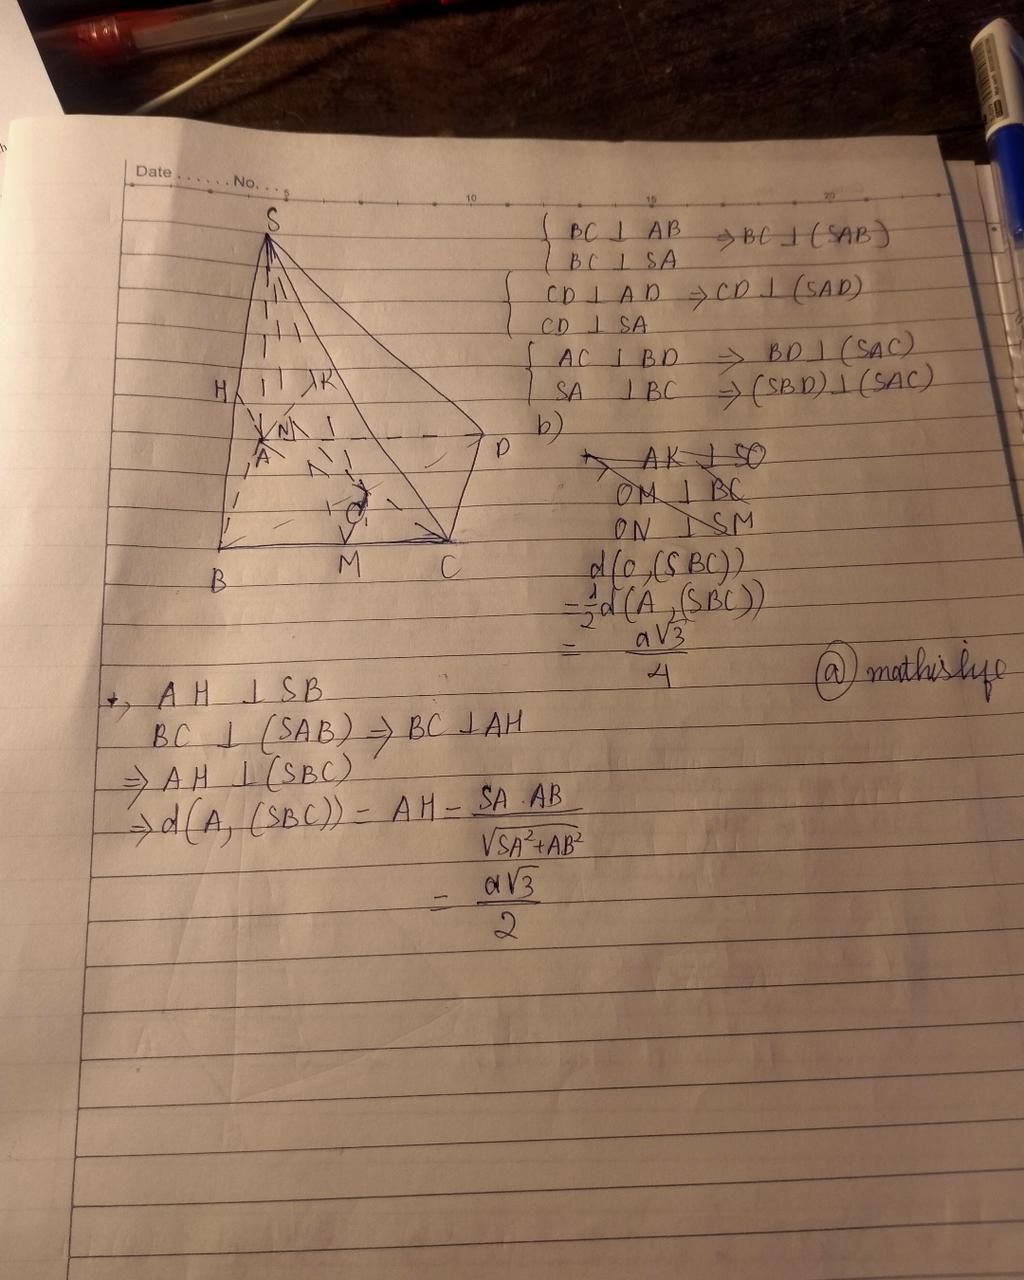 Date ...... No. ...
5 10 15 20
S
H
K
N
A
D
O
B M C
{ BC ⊥ AB ⇒ BC ⊥ (SAB)
BC ⊥ SA
{ CD ⊥ AD ⇒ CD ⊥ (SAD)
CD ⊥ SA
{ AC ⊥ BD ⇒ BD ⊥ (SAC)
SA ⊥ BC ⇒ (SBD) ⊥ (SAC)
b)
AK ⊥ SO
OM ⊥ BC
ON ⊥ SM
d(O,(SBC))
= 1/2 d(A,(SBC))
= a√3/4
@ mathislife
+, AH ⊥ SB
BC ⊥ (SAB) ⇒ BC ⊥ AH
⇒ AH ⊥ (SBC)
⇒ d(A, (SBC)) = AH = SA.AB/√SA²+AB²
= a√3/2